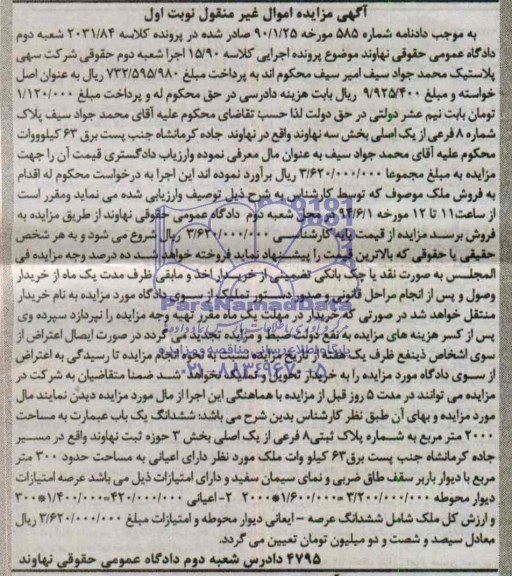 آگهی مزایده اموال غیر منقول نوبت اول
به موجب دادنامه شماره ۵۸۵ مورخه ۹۰/۱/۲۵ صادر شده در پرونده کلاسه ۲۰۳۱/۸۴ شعبه دوم
دادگاه عمومی حقوقی نهاوند موضوع پرونده اجرایی کلاسه ۱۵/۹۰ اجرا شعبه دوم حقوقی شرکت سهی
پلاستیک محمد جواد سیف امیر سیف محکوم اند به پرداخت مبلغ ۷۳۲/۵۹۵/۹۸۰ ریال به عنوان اصل
خواسته و مبلغ ۹/۹۲۵/۴۰۰ ریال بابت هزینه دادرسی در حق محکوم له و پرداخت مبلغ ۱/۱۲۰/۰۰۰
تومان بابت نیم عشر دولتی در حق دولت لذا حسب تقاضای محکوم علیه آقای محمد جواد سیف پلاک
شماره ۸ فرعی از یک اصلی بخش سه نهاوند واقع در نهاوند جاده کرمانشاه جنب پست برق ۶۳ کیلوووات
محکوم علیه آقای محمد جواد سیف به عنوان مال معرفی نموده وارزیاب دادگستری قیمت آن را جهت
مزایده به مبلغ مجموعا ۳/۶۲۰/۰۰۰/۰۰۰ ریال برآورد نموده اند این اجرا به درخواست محکوم له اقدام
به فروش ملک موصوف که توسط کارشناس به شرح ذیل توصیف وارزیابی شده می نماید ومقرر است
از ساعت ۱۱ تا ۱۲ مورخه ۹۴/۶/۱ در محل شعبه دوم دادگاه عمومی حقوقی نهاوند از طریق مزایده به
فروش برسد مزایده از قیمت پایه کارشناسی ۳/۶۲۰/۰۰۰/۰۰۰ ریال شروع می شود و به هر شخص
حقیقی یا حقوقی که بالاترین قیمت را پیشنهاد نماید فروخته خواهد شد ده درصد وجه مزایده فی
المجلس به صورت نقد یا چک بانکی تضمینی از خریدار اخذ و مابقی ظرف مدت یک ماه از خریدار
وصول و پس از انجام مراحل قانونی و صدور دستور تملیک از سوی دادگاه مورد مزایده به نام خریدار
منتقل خواهد شد در صورتی که خریدار در مهلت یک ماه مقرر بقیه وجه مزایده را نپردازد سپرده وی
پس از کسر هزینه های مزایده به نفع دولت ضبط و مزایده تجدید می گردد در صورت ایصال اعتراض از
سوی اشخاص ذینفع ظرف یک هفته از تاریخ مزایده نسبت به نحوه انجام مزایده تا رسیدگی به اعتراض
از سوی دادگاه مورد مزایده را به خریدار تحویل و تملیک نخواهد شد ضمنا متقاضیان به شرکت در
مزایده می توانند در مدت ۵ روز قبل از مزایده با هماهنگی این اجرا از مال مورد مزایده دیدن نمایند مال
مورد مزایده و بهای آن طبق نظر کارشناس بدین شرح می باشد: ششدانگ یک باب عمارت به مساحت
۲۰۰۰ متر مربع به شماره پلاک ثبتی ۸ فرعی از یک اصلی بخش ۳ حوزه ثبت نهاوند واقع در مسیر
جاده کرمانشاه جنب پست برق ۶۳ کیلو وات ملک مورد نظر دارای اعیانی به مساحت حدود ۳۰۰ متر
مربع با دیوار باربر سقف طاق ضربی و نمای سیمان سفید و دارای امتیازات ذیل می باشد عرصه امتیازات
دیوار محوطه ۳/۲۰۰/۰۰۰/۰۰۰=۱/۶۰۰/۰۰۰*۲۰۰۰ ۲-اعیانی ۴۲۰/۰۰۰/۰۰۰=۱/۴۰۰/۰۰۰*۳۰۰
و ارزش کل ملک شامل ششدانگ عرصه - ایعانی دیوار محوطه و امتیازات مبلغ ۳/۶۲۰/۰۰۰/۰۰۰ ریال
معادل سیصد و شصت و دو میلیون تومان تعیین می گردد.
۴۷۹۵ دادرس شعبه دوم دادگاه عمومی حقوقی نهاوند
ParsNamadData
پایگاه اطلاع رسانی مناقصه و مزایده
۰۲۱-۸۸۳۴۹۶۷۰-۵